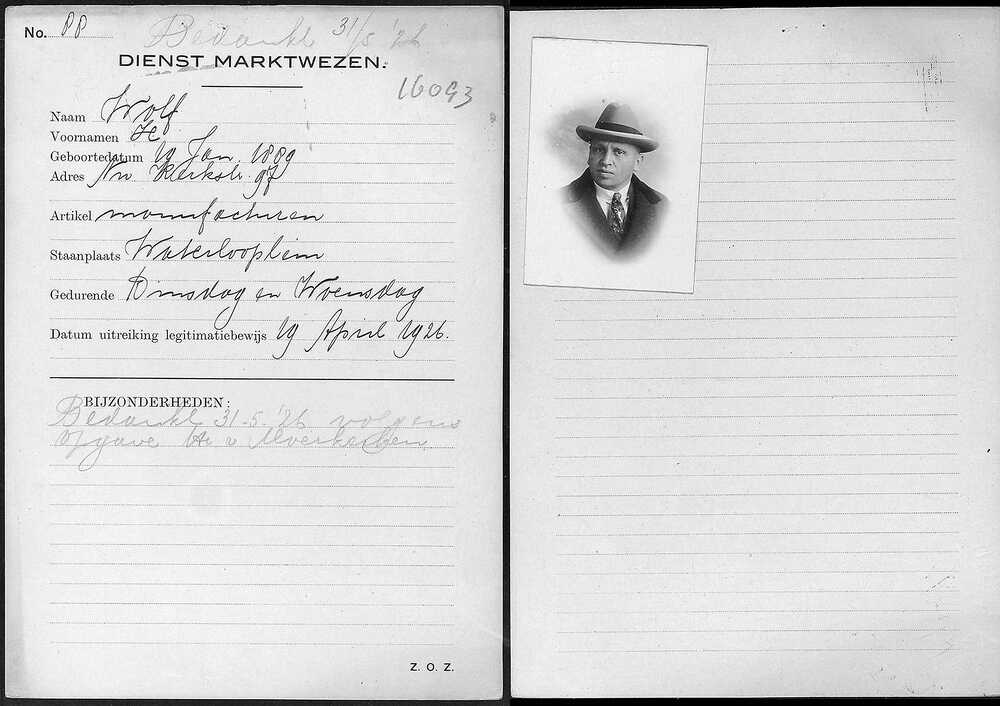 No. 88
Bedankt 31/5 '26
DIENST MARKTWEZEN.
16093
Naam Wolf
Voornamen H
Geboortedatum 19 Jan. 1889
Adres Nw Kerkstr. 97
Artikel manufacturen
Staanplaats Waterlooplein
Gedurende Dinsdag en Woensdag
Datum uitreiking legitimatiebewijs 19 April 1926.
BIJZONDERHEDEN:
Bedankt 31-5-'26 volgens
opgave H v
Z. O. Z.